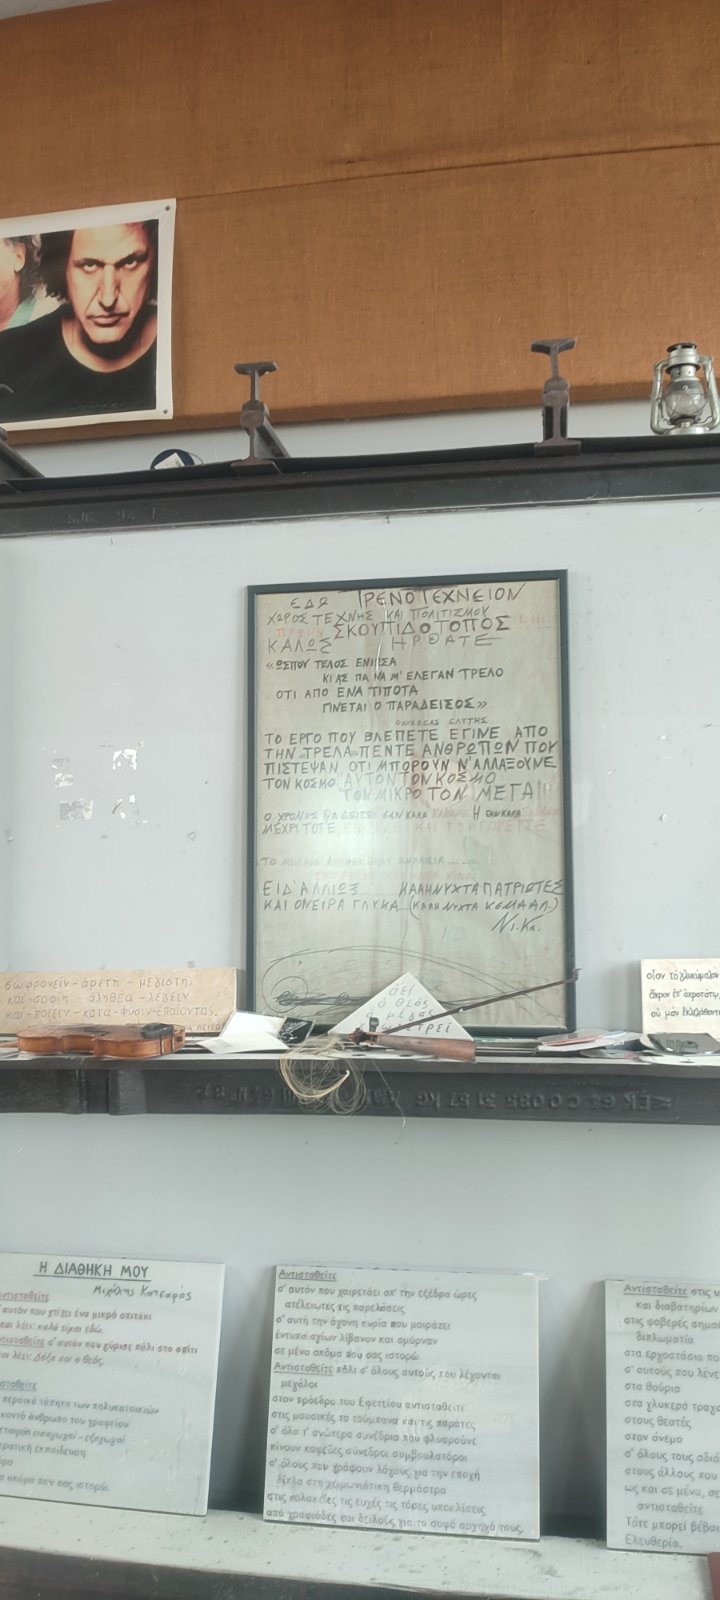 ΕΔΩ ΤΡΕΝΟΤΕΧΝΕΙΟΝ
ΧΩΡΟΣ ΤΕΧΝΗΣ ΚΑΙ ΠΟΛΙΤΙΣΜΟΥ
ΠΡΩΗΝ ΣΚΟΥΠΙΔΟΤΟΠΟΣ
ΚΑΛΩΣ ΗΡΘΑΤΕ
«ΩΣΠΟΥ ΤΕΛΟΣ ΕΝΙΩΣΑ
ΚΙ ΑΣ ΠΑ ΝΑ Μ' ΕΛΕΓΑΝ ΤΡΕΛΟ
ΟΤΙ ΑΠΟ ΕΝΑ ΤΙΠΟΤΑ
ΓΙΝΕΤΑΙ Ο ΠΑΡΑΔΕΙΣΟΣ»
ΟΔΥΣΣΕΑΣ ΕΛΥΤΗΣ
ΤΟ ΕΡΓΟ ΠΟΥ ΒΛΕΠΕΤΕ ΕΓΙΝΕ ΑΠΟ
ΤΗΝ «ΤΡΕΛΑ» ΠΕΝΤΕ ΑΝΘΡΩΠΩΝ ΠΟΥ
ΠΙΣΤΕΨΑΝ ΟΤΙ ΜΠΟΡΟΥΝ Ν' ΑΛΛΑΞΟΥΝΕ
ΤΟΝ ΚΟΣΜΟ ΑΥΤΟΝ ΤΟΝ ΚΟΣΜΟ
ΤΟΝ ΜΙΚΡΟ ΤΟΝ ΜΕΓΑ!!!
Ο ΧΡΟΝΟΣ ΘΑ ΔΕΙΞΕ ΕΑΝ ΚΑΛΑ Η ΕΑΝ ΚΑΚΑ
ΜΕΧΡΙ ΤΟΤΕ ΚΑΙ
ΕΙΔ' ΑΛΛΙΩΣ ΚΑΛΗΝΥΧΤΑ ΠΑΤΡΙΩΤΕΣ
ΚΑΙ ΟΝΕΙΡΑ ΓΛΥΚΑ (ΚΑΛΗΝΥΧΤΑ ΚΕΜΑΛ.)
Νι.Κα.
σωφρονεῖν - ἀρετή - μεγίστη,
και - σοφίη - ἀληθέα - λέγειν
και - ποιεῖν - κατα - φυσιν - ἐπαΐοντας.
ἀεί
ὁ Θεὸς
ὁ μέγας
οἷον τὸ γλυκύμαλον
ἄκρον ἐπ' ἀκροτάτῳ,
οὐ μὰν ἐκλελάθοντο
Η ΔΙΑΘΗΚΗ ΜΟΥ
Μιχάλης Κατσαρός
Αντισταθείτε
σ' αυτόν που χτίζει ένα μικρό σπιτάκι
και λέει: καλά είμαι εδώ.
Αντισταθείτε σ' αυτόν που γύρισε πάλι στο σπίτι
και λέει: Δόξα σοι ο Θεός.
Αντισταθείτε
περσικό τάπητα των πολυκατοικιών
κοντό άνθρωπο του γραφείου
εταιρεία εισαγωγαί - εξαγωγαί
κρατική εκπαίδευση
φόρο
ακόμα που σας ιστορώ.
Αντισταθείτε
σ' αυτόν που χαιρετάει απ' την εξέδρα ώρες
ατέλειωτες τις παρελάσεις
σ' αυτή την άχονη κυρία που μοιράζει
έντυπα αγίων λίβανον και σμύρναν
σε μένα ακόμα που σας ιστορώ.
Αντισταθείτε πάλι σ' όλους αυτούς που λέγονται
μεγάλοι
στον πρόεδρο του Εφετείου αντισταθείτε
στις μουσικές τα τούμπανα και τις παράτες
σ' όλα τ' ανώτερα συνέδρια που φλυαρούνε
πίνουν καφέδες σύνεδροι συμβουλατόροι
σ' όλους που γράφουν λόγους για την εποχή
δίπλα στη χειμωνιάτικη θερμάστρα
στις κολακείες τις ευχές τις τόσες υποκλίσεις
από γραφιάδες και δειλούς για το σοφό αρχηγό τους.
Αντισταθείτε στις
και διαβατηρίων
στις φοβερές
διπλωματία
στα εργοστάσια
σ' αυτούς που λένε
στα θούρια
στα γλυκερά
στους θεατές
στον άνεμο
σ' όλους τους
στους άλλους που
ως και σε μένα, σε
αντισταθείτε
Τότε μπορεί
Ελευθερία.